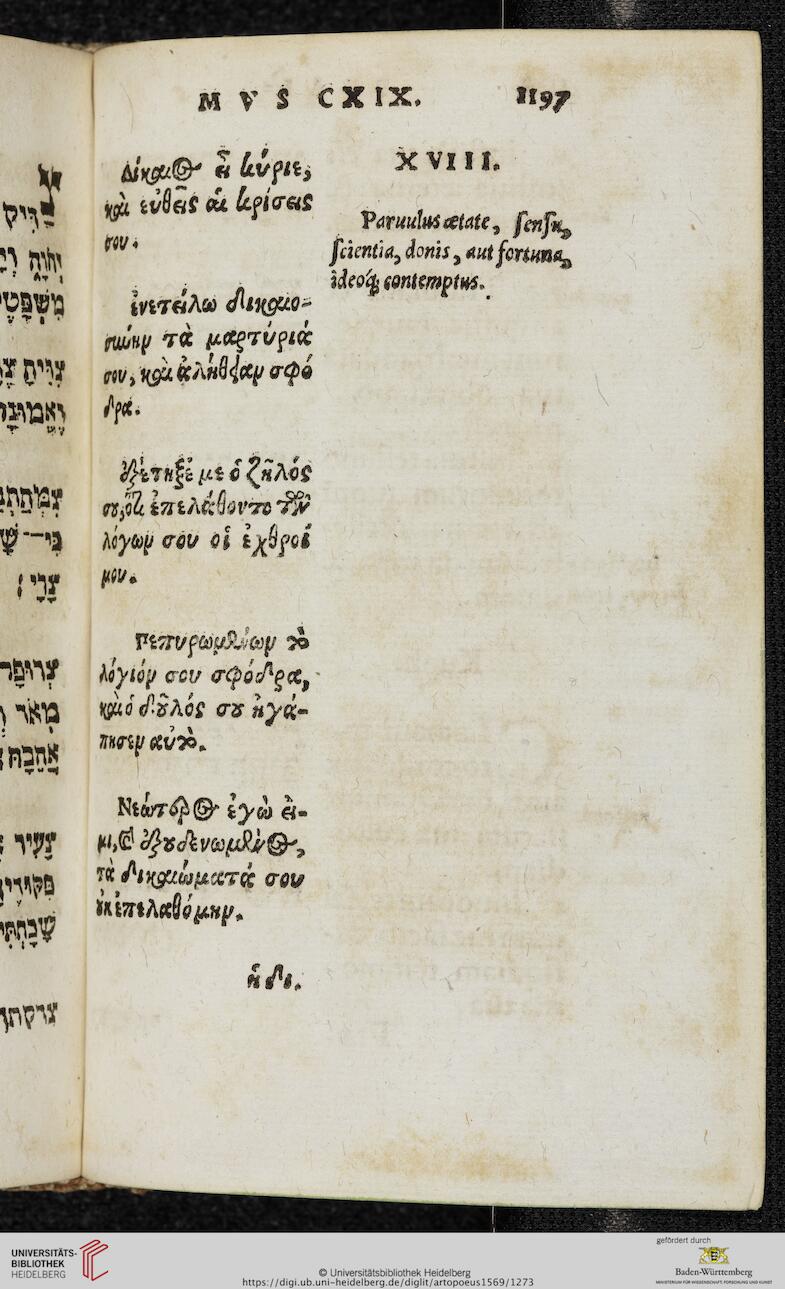 MVS CXIX. 1197
Δίκαιος εἶ κύριε,
καὶ εὐθεῖς αἱ κρίσεις
σου.
ἐνετείλω δικαιο-
σύνην τὰ μαρτύριά
σου, καὶ ἀλήθειαν σφό
δρα.
ἐξέτηξέ με ὁ ζῆλός
σου, ὅτι ἐπελάθοντο τῶν
λόγων σου οἱ ἐχθροί
μου.
Πεπυρωμένον τὸ
λόγιόν σου σφόδρα,
καὶ ὁ δοῦλός σου ἠγά-
πησεν αὐτό.
Νεώτερος ἐγὼ εἰ-
μι, καὶ ἐξουδενωμένος,
τὰ δικαιώματά σου
οὐκ ἐπελαθόμην.
ἡ δι.
XVIII.
Paruulus ætate, sensu,
scientia, donis, aut fortuna,
ideoq́; contemptus.
צרי׃
מאד
אהבה
צעיר
UNIVERSITÄTS-
BIBLIOTHEK
HEIDELBERG
© Universitätsbibliothek Heidelberg
https://digi.ub.uni-heidelberg.de/diglit/artopoeus1569/1273
gefördert durch
Baden-Württemberg
MINISTERIUM FÜR WISSENSCHAFT, FORSCHUNG UND KUNST